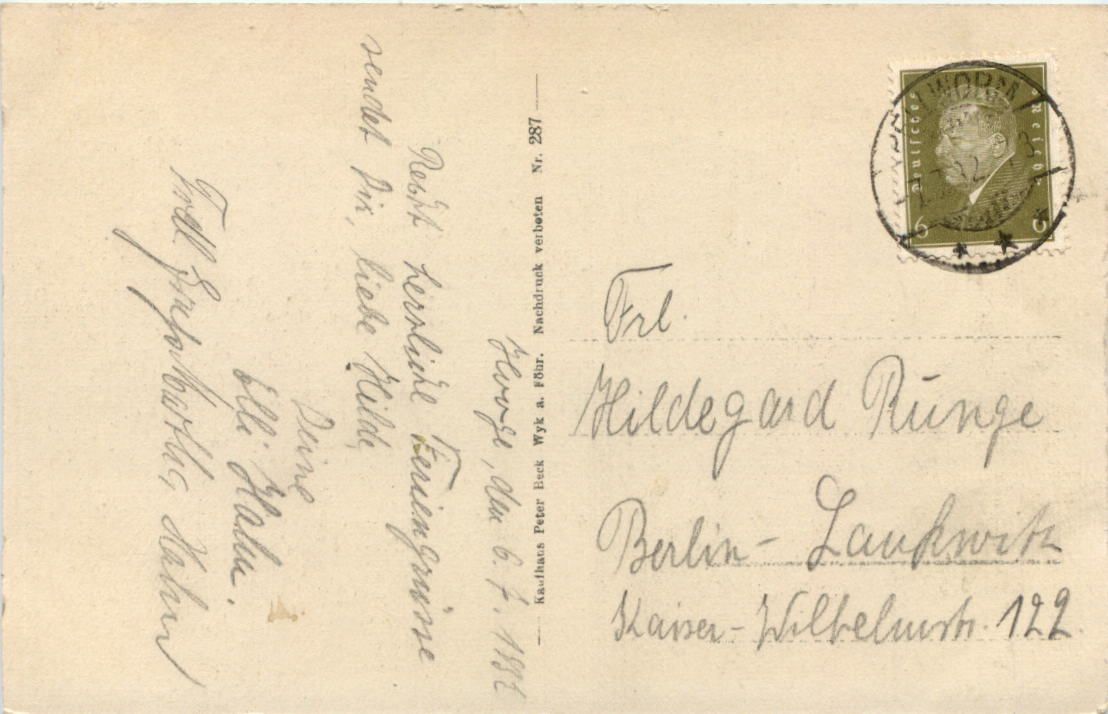 Hooge, den 6. 7. 1932
Recht herzliche Feriengrüsse
sendet Dir, liebe Hilde,
Deine
Elli Hahn.
Kaufhaus Peter Beck Wyk a. Föhr. Nachdruck verboten Nr. 287
Deutsches Reich
6 6
PELLWORM
7.7.32
Frl.
Hildegard Runge
Berlin-Lankwitz
Kaiser-Wilhelmstr. 122.